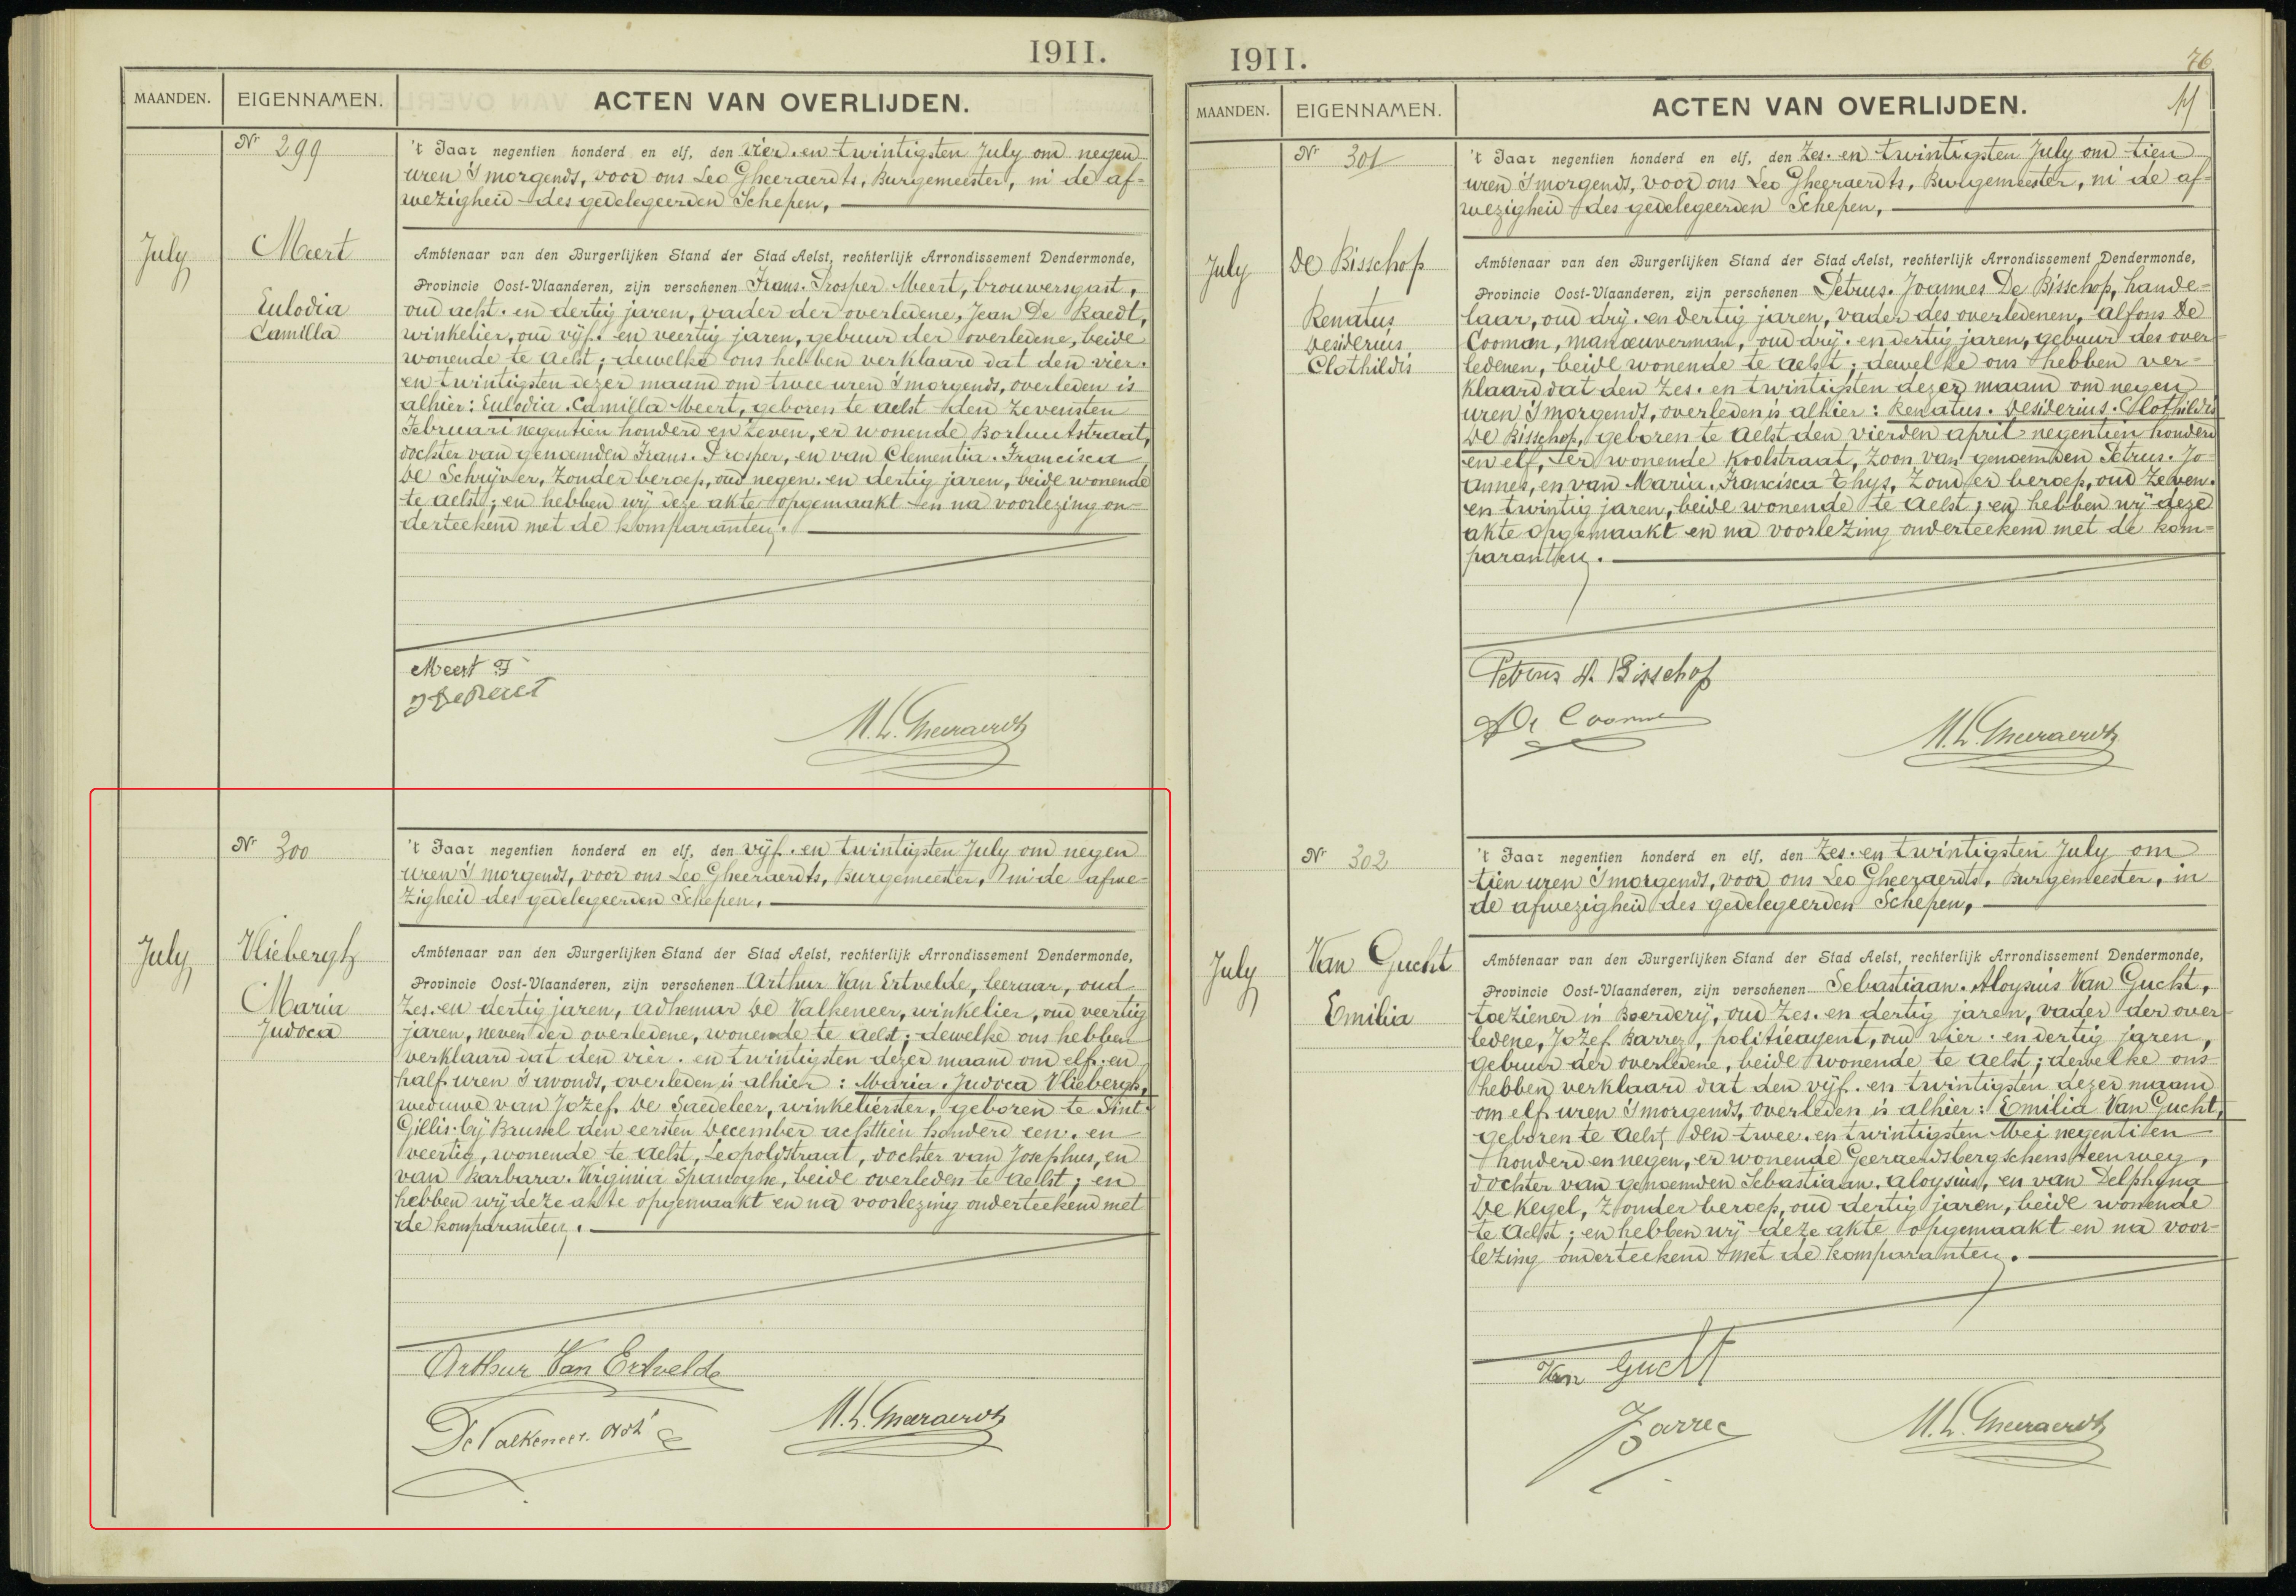 1911.
MAANDEN. EIGENNAMEN. ACTEN VAN OVERLIJDEN.
Nr 299
July
Meert
Eulodia
Camilla
't Jaar negentien honderd en elf, den vier en twintigsten July om negen
uren 's morgends, voor ons Leo Gheeraerdts, Burgemeester, in de af=
wezigheid des gedelegeerden Schepen,
Ambtenaar van den Burgerlijken Stand der Stad Aelst, rechterlijk Arrondissement Dendermonde,
Provincie Oost-Vlaanderen, zijn verschenen Frans. Prosper Meert, brouwersgast,
oud acht. en dertig jaren, vader der overledene, Jean De Raedt,
winkelier, oud vijf. en veertig jaren, gebuur der overledene, beide
wonende te Aelst; dewelke ons hebben verklaard dat den vier.
en twintigsten dezer maand om twee uren 's morgends, overleden is
alhier: Eulodia. Camilla Meert, geboren te Aelst den zevensten
Februari negentien honderd en zeven, er wonende Borluutstraat,
dochter van genoemden Frans. Prosper, en van Clementia. Francisca
De Schrijver, zonder beroep, oud negen. en dertig jaren, beide wonende
te Aelst; en hebben wij deze akte opgemaakt en na voorlezing on=
derteekend met de komparanten.
Meert F
J De Raedt
M. L. Gheeraerdts
Nr 300
July
Vliebergh
Maria
Judoca
't Jaar negentien honderd en elf, den vijf. en twintigsten July om negen
uren 's morgends, voor ons Leo Gheeraerdts, Burgemeester, in de afwe=
zigheid des gedelegeerden Schepen,
Ambtenaar van den Burgerlijken Stand der Stad Aelst, rechterlijk Arrondissement Dendermonde,
Provincie Oost-Vlaanderen, zijn verschenen Arthur Van Ertvelde, leeraar, oud
zes. en dertig jaren, Adhemar De Valkeneer, winkelier, oud veertig
jaren, neven der overledene, wonende te Aelst; dewelke ons hebben
verklaard dat den vier. en twintigsten dezer maand om elf. en
half uren 's avonds, overleden is alhier: Maria. Judoca Vliebergh,
weduwe van Jozef De Saedeleer, winkelierster, geboren te Sint
Gillis. bij Brussel den eersten December achttien honderd een. en
veertig, wonende te Aelst, Leopoldstraat, dochter van Josephus, en
van Barbara. Virginia Spanoghe, beide overleden te Aelst; en
hebben wij deze akte opgemaakt en na voorlezing onderteekend met
de komparanten.
Arthur Van Ertvelde
De Valkeneer Adh
M. L. Gheeraerdts
1911.
76
MAANDEN. EIGENNAMEN. ACTEN VAN OVERLIJDEN.
Nr 301
July
De Bisschop
Renatus
Desiderius
Clothildis
't Jaar negentien honderd en elf, den zes. en twintigsten July om tien
uren 's morgends, voor ons Leo Gheeraerdts, Burgemeester, in de af=
wezigheid des gedelegeerden Schepen,
Ambtenaar van den Burgerlijken Stand der Stad Aelst, rechterlijk Arrondissement Dendermonde,
Provincie Oost-Vlaanderen, zijn verschenen Petrus. Joannes De Bisschop, hande=
laar, oud drij. en dertig jaren, vader des overledenen, Alfons De
Cooman, manœuverman, oud drij. en dertig jaren, gebuur des over
ledenen, beide wonende te Aelst; dewelke ons hebben ver=
klaard dat den zes. en twintigsten dezer maand om negen
uren 's morgends, overleden is alhier: Renatus. Desiderius. Clothildis
De Bisschop, geboren te Aelst den vierden april negentien honderd
en elf, er wonende Koolstraat, zoon van genoemden Petrus. Jo=
annes, en van Maria. Francisca Thys, zonder beroep, oud zeven.
en twintig jaren, beide wonende te Aelst; en hebben wij deze
akte opgemaakt en na voorlezing onderteekend met de kom=
paranten.
Petrus De Bisschop
A De Cooman
M. L. Gheeraerdts
Nr 302
July
Van Gucht
Emilia
't Jaar negentien honderd en elf, den zes. en twintigsten July om
tien uren 's morgends, voor ons Leo Gheeraerdts, Burgemeester, in
de afwezigheid des gedelegeerden Schepen,
Ambtenaar van den Burgerlijken Stand der Stad Aelst, rechterlijk Arrondissement Dendermonde,
Provincie Oost-Vlaanderen, zijn verschenen Sebastiaan. Aloysius Van Gucht,
toeziener in Boerderij, oud zes. en dertig jaren, vader der over
ledene, Jozef Barrez, politieagent, oud vier. en dertig jaren,
gebuur der overledene, beide wonende te Aelst; dewelke ons
hebben verklaard dat den vijf. en twintigsten dezer maand
om elf uren 's morgends, overleden is alhier: Emilia Van Gucht,
geboren te Aelst den twee. en twintigsten Mei negentien
honderd en negen, er wonende Geeraerdsbergschensteenweg,
dochter van genoemden Sebastiaan. Aloysius, en van Delphyna
De Kegel, zonder beroep, oud dertig jaren, beide wonende
te Aelst; en hebben wij deze akte opgemaakt en na voor=
lezing onderteekend met de komparanten.
Van Gucht
J Barrez
M. L. Gheeraerdts